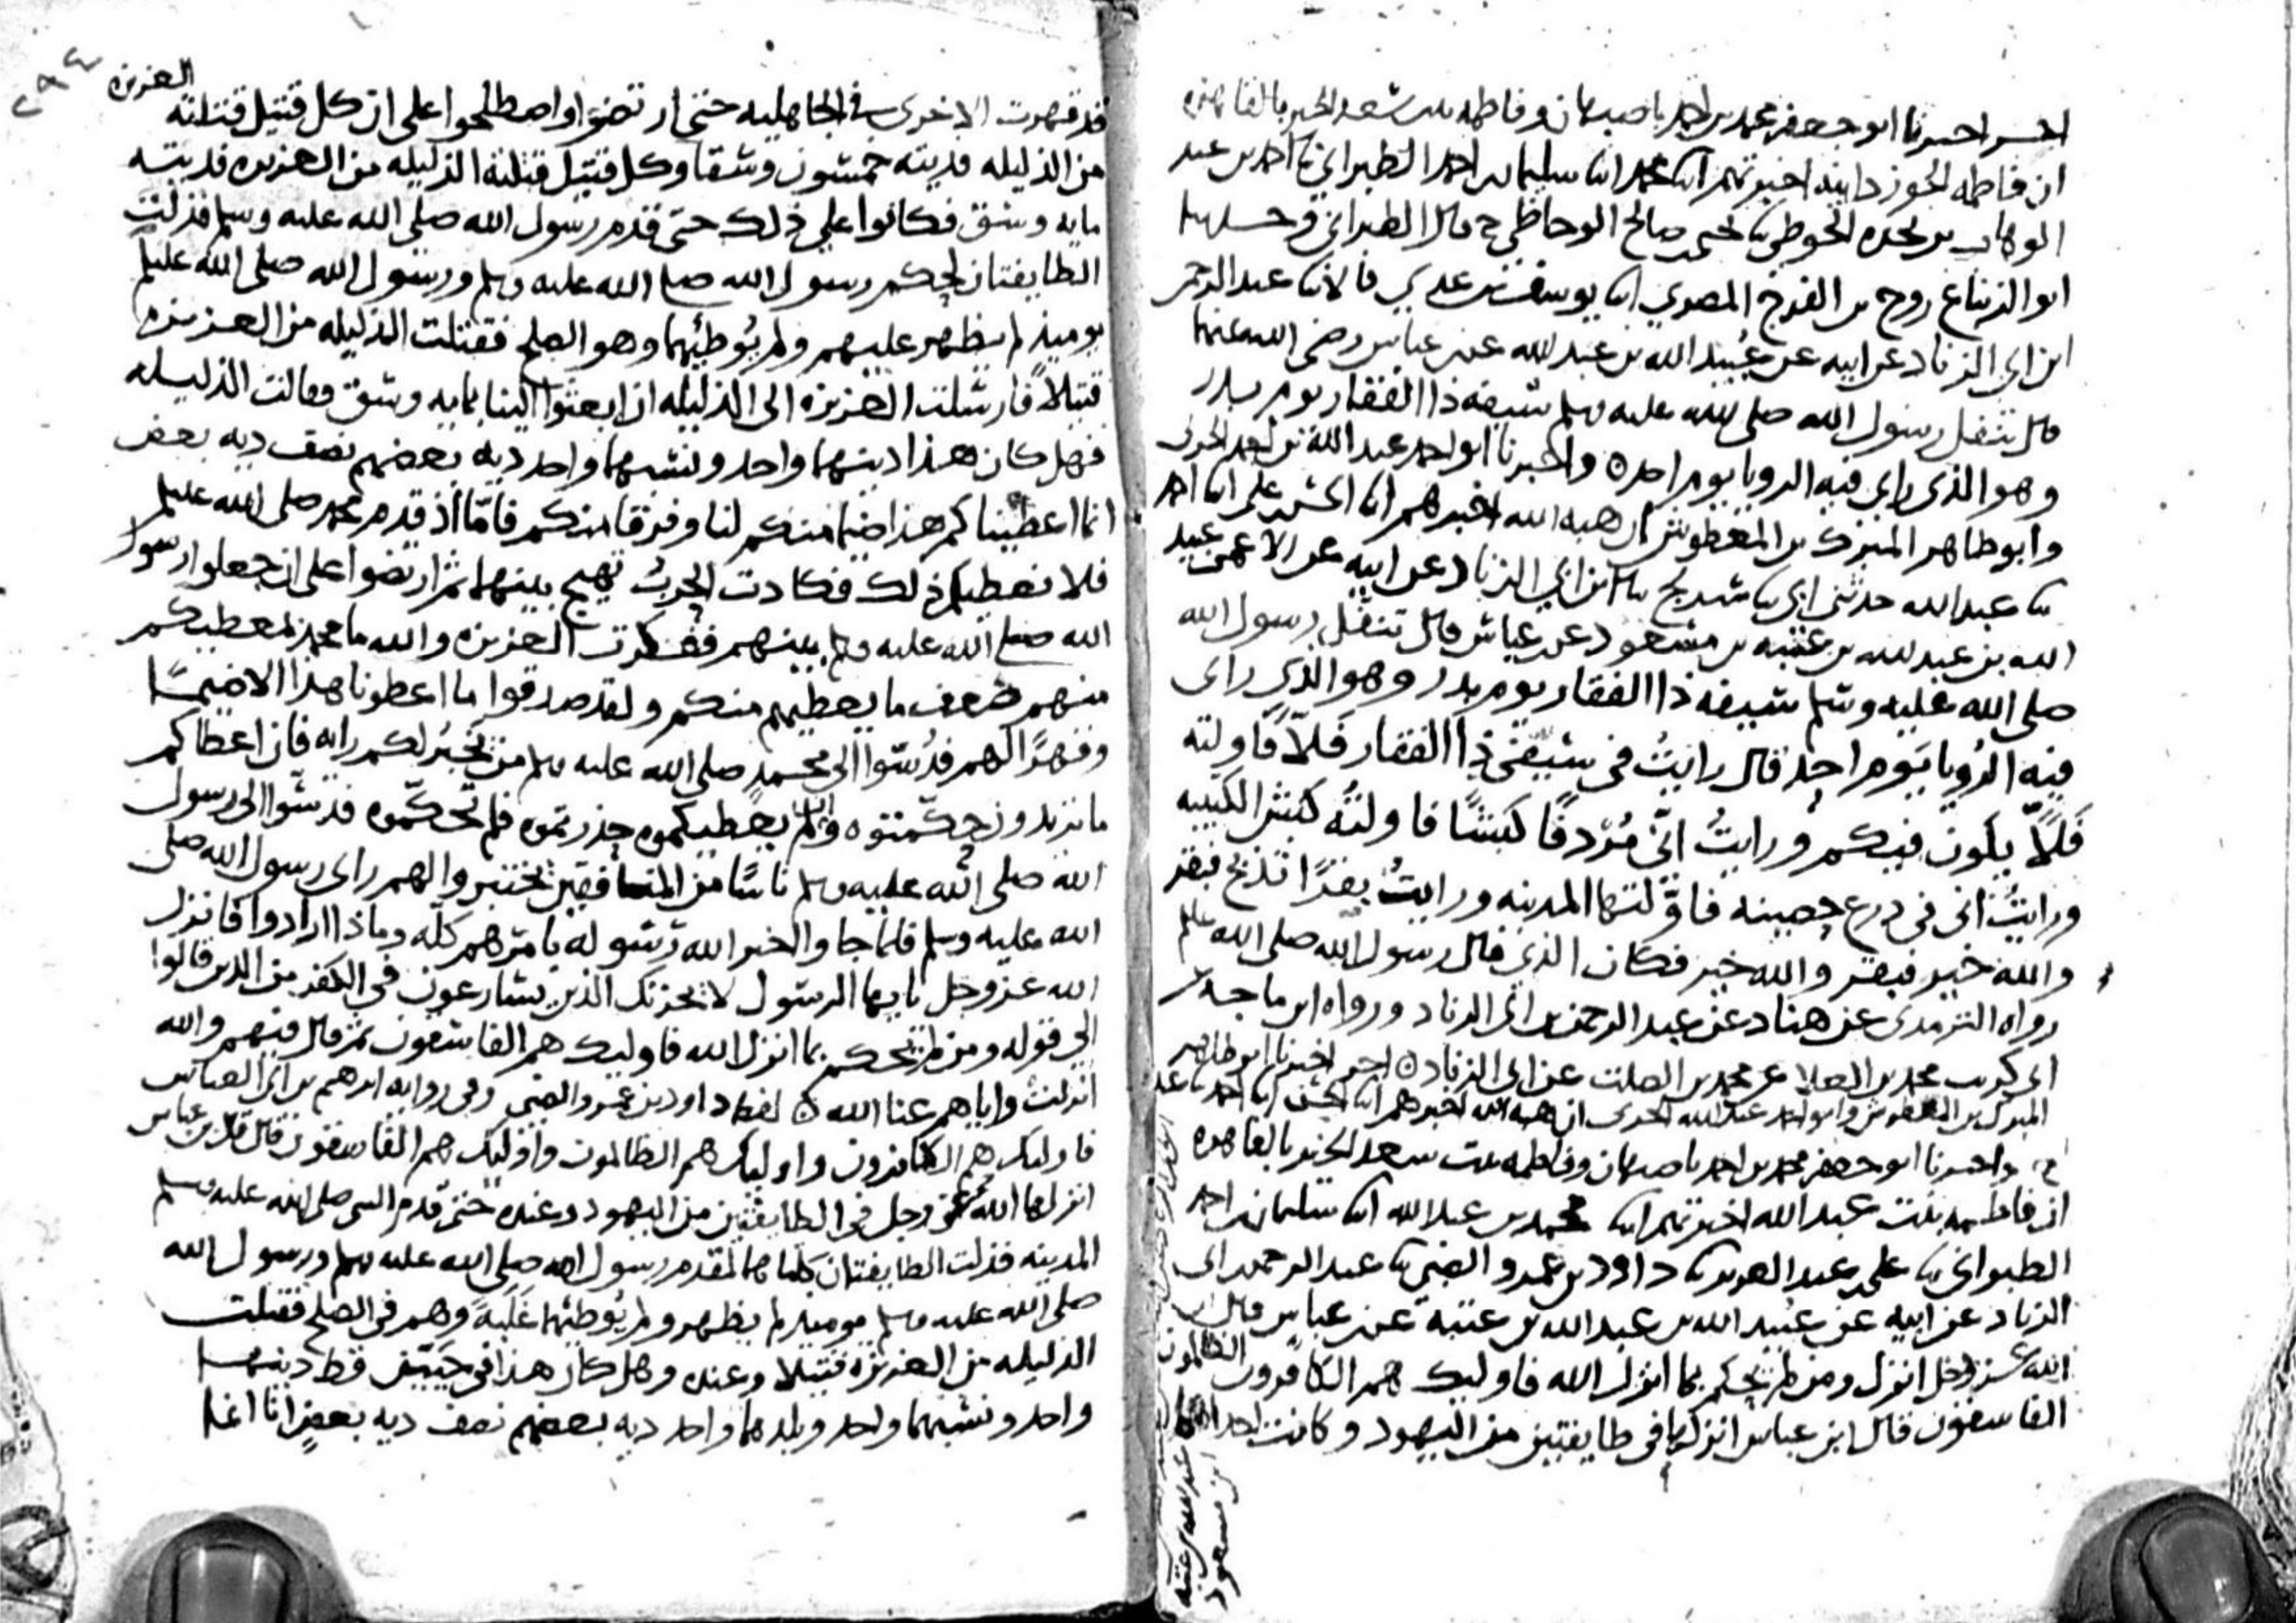 اخبرنا ابو جعفر محمد بن احمد باصبهان وفاطمه بنت سعد الخير بالقاهره
ان فاطمه الجوزدانيه اخبرتهم ابنا محمد ابنا سليمان بن احمد الطبراني ثنا احمد بن عبد
الوهاب بن نجده الحوطي ثنا يحيى بن صالح الوحاظي ح قال الطبراني وحدثنا
ابو الزنباع روح بن الفرج المصري ثنا يوسف بن عدي قالا ثنا عبد الرحمن
ابن ابي الزناد عن ابيه عن عبيد الله بن عبد الله عن ابن عباس رضي الله عنهما
قال تنفل رسول الله صلى الله عليه وسلم سيفه ذا الفقار يوم بدر
وهو الذي راى فيه الرويا يوم احد ه واخبرنا ابو احمد عبد الله بن احمد الحربي
وابو طاهر المبرك بن المعطوش ان هبه الله اخبرهم ابنا الحسن بن علي ابنا احمد
ثنا عبد الله حدثني ابي ثنا سريج ثنا ابن ابي الزناد عن ابيه عن الاعمى عبيد
الله بن عبد الله بن عتبه بن مسعود عن ابن عباس قال تنفل رسول الله
صلى الله عليه وسلم سيفه ذا الفقار يوم بدر وهو الذي راى
فيه الرُويا يوم احد قال رايتُ في سيفي ذا الفقار فلّا فاولته
فَلّاً يكون فيكم ورايتُ انّي مُرْدفًا كبشًا فاولتُه كبش الكتيبه
ورايتُ اني في درع حصينه فاوّلتها المدينه ورايتُ بقرًا تذبح فبقر
والله خير فبقر والله خير فكان الذي قال رسول الله صلى الله عليه وسلم
رواه الترمذي عن هناد عن عبد الرحمن بن ابي الزناد ورواه ابن ماجه عن
ابي كريب محمد بن العلا عن محمد بن الصلت عن ابن ابي الزناد ه اخر اخبرنا ابو طاهر
المبرك بن المعطوش وابو احمد عبد الله الحربي ان هبه الله اخبرهم ابنا الحسن ابنا احمد ثنا عبد
ح واخبرنا ابو جعفر محمد بن احمد باصبهان وفاطمه بنت سعد الخير بالقاهره
ان فاطمه بنت عبد الله اخبرتهم ابنا محمد بن عبد الله ابنا سليمان بن احمد
الطبراني ثنا علي بن عبد العزيز ثنا داود بن عمرو الضبي ثنا عبد الرحمن بن ابي
الزناد عن ابيه عن عبيد الله بن عبد الله بن عتبة عن ابن عباس قال ان
الله عز وجل انزل ومن لم يحكم بما انزل الله فاوليك هم الكافرون الظالمون
الفاسقون قال ابن عباس انزلها في طايفتين من اليهود وكانت احداهما
عبد الله بن عتبه
ابن مسعود
٢٩٤
العزيزه
قد قهرت الاخرى في الجاهليه حتى ارتضوا او اصطلحوا على ان كل قتيل قتلته
من الذليله فديته خمسون وسقا وكل قتيل قتلته الذليله من العزيزه فديته
مايه وسق فكانوا على ذلك حتى قدم رسول الله صلى الله عليه وسلم فذلت
الطايفتان لحكم رسول الله صلى الله عليه وسلم ورسول الله صلى الله عليه وسلم
يوميذ لم يظهر عليهم ولم يُوطئهما وهو الصلح فقتلت الذليله من العزيزه
قتيلاً فارسلت العزيزه الى الذليله ان ابعثوا الينا بمايه وسق فقالت الذليله
فهل كان هذا دينهما واحد ونسبهما واحد ديه بعضهم نصف ديه بعض
انما اعطيناكم هذا ضيما منكم لنا وفرقا منكم فامّا اذ قدم محمد صلى الله عليه وسلم
فلا نعطيكم ذلك فكادت الحربُ تهيج بينهما ثم ارتضوا على ان جعلوا رسول
الله صلى الله عليه وسلم بينهم ففكرت العزيزه والله ما محمد بمعطيكم
منهم ضعف ما يعطيهم منكم ولقد صدقوا ما اعطونا هذا الا ضيمًا
وقهرًا لهم فدُسّوا الى محمدٍ صلى الله عليه وسلم من يخبُر لكم رايه فان اعطاكم
ما تريدون حكّمتوه وان لم يعطيكموه حذرتموه فلم تحكّموه فدسّوا الى رسول
الله صلى الله عليه وسلم ناسًا من المنافقين يختبروا لهم راى رسول الله صلى
الله عليه وسلم فلما جاوا اخبر الله رسوله بامرهم كلّه وماذا ارادوا فانزل
الله عز وجل يا ايها الرسول لا يحزنك الذين يسارعون في الكفر من الذين قالوا
الى قوله ومن لم يحكم بما انزل الله فاوليك هم الفاسقون ثم قال فيهم والله
انزلت واياهم عنا الله ه لفظ داود بن عمرو الضبي وفي روايه ابرهيم بن ابي العباس
فاوليك هم الكافرون واوليك هم الظالمون واوليك هم الفاسقون قال قال ابن عباس
انزلها الله عز وجل في الطايفتين من اليهود وعنده حتى قدم النبي صلى الله عليه وسلم
المدينه فذلت الطايفتان كلتاهما لمقدم رسول الله صلى الله عليه وسلم ورسول الله
صلى الله عليه وسلم يوميذ لم يظهر ولم يُوطئهما عليه وهم في الصلح فقتلت
الذليله من العزيزه قتيلا وعنده وهل كان هذا في حيّين قط دينهما
واحد ونسبهما واحد وبلدهما واحد ديه بعضهم نصف ديه بعضٍ انا انما